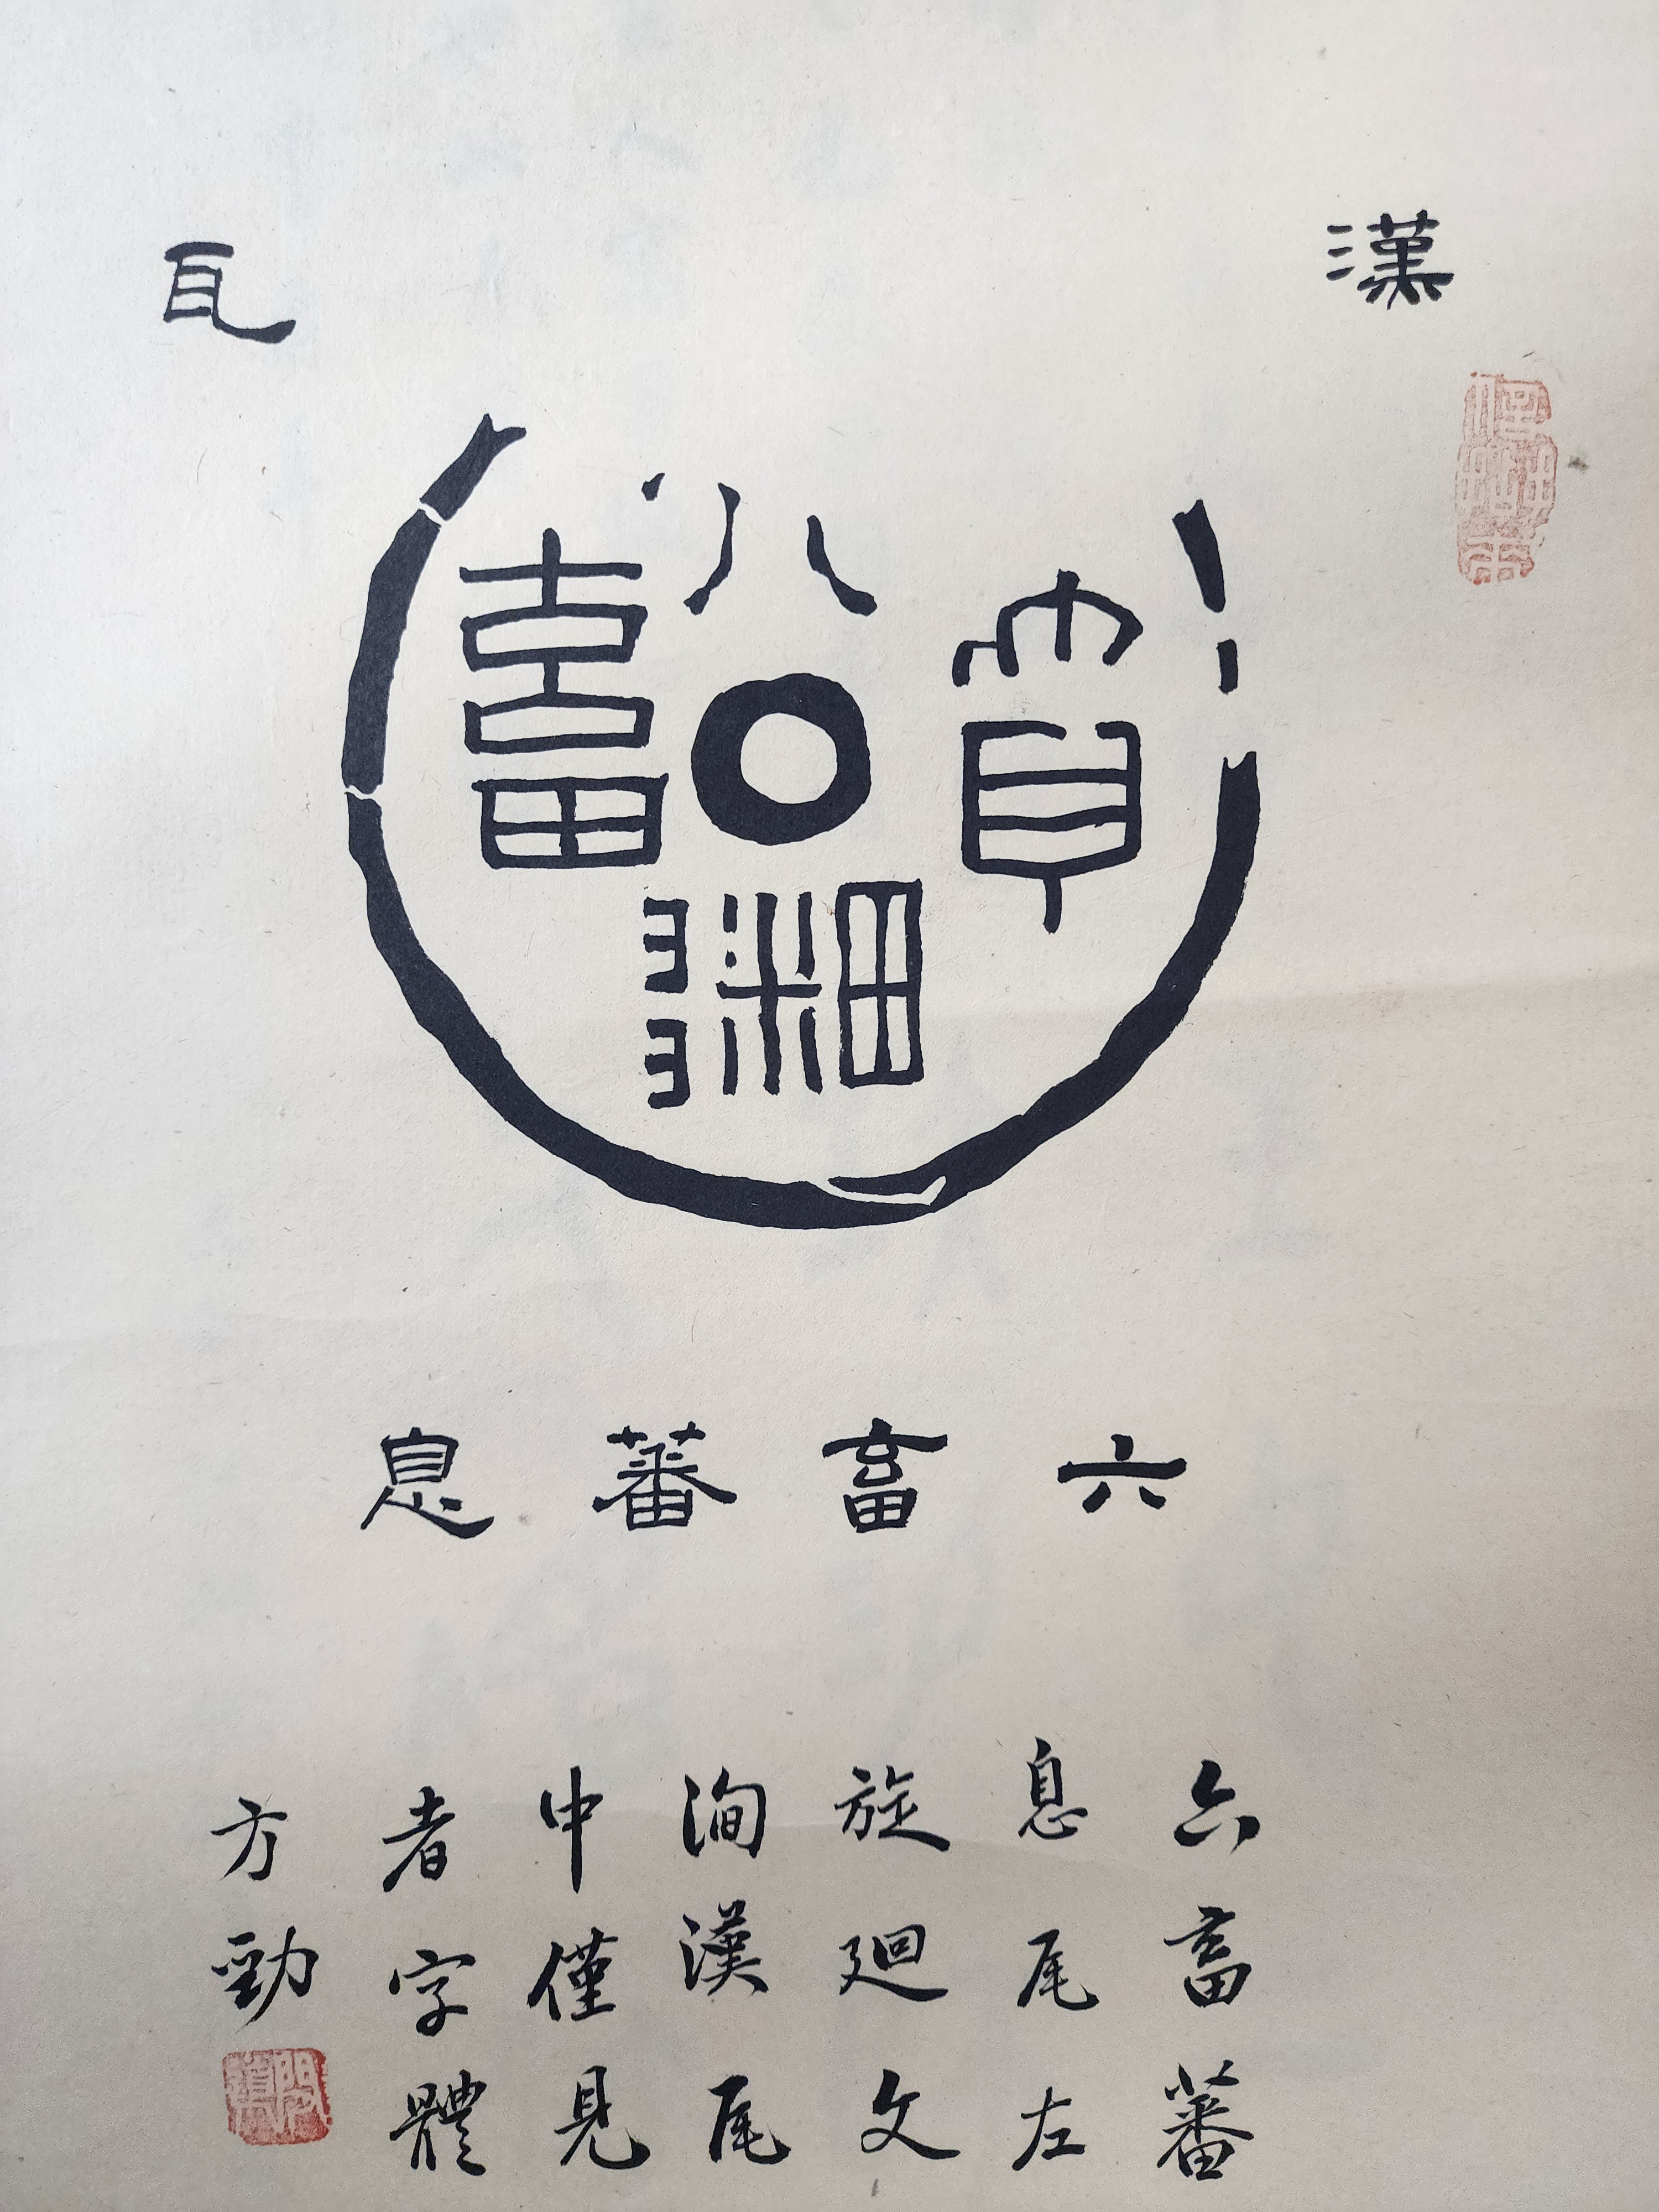 漢瓦
六畜蕃息
六畜蕃息
六畜蕃
息瓦左
旋廻文
洵漢瓦
中僅見
者字體
方勁